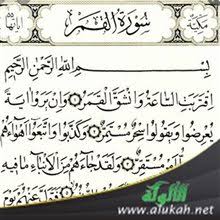 مكية سُورَةُ القَمَر آياتها
بِسْمِ اللَّهِ الرَّحْمَٰنِ الرَّحِيمِ
اقْتَرَبَتِ السَّاعَةُ وَانْشَقَّ الْقَمَرُ وَإِنْ يَرَوْا آيَةً
يُعْرِضُوا وَيَقُولُوا سِحْرٌ مُسْتَمِرٌّ وَكَذَّبُوا وَاتَّبَعُوا أَهْوَاءَهُمْ
مُسْتَقِرٌّ وَلَقَدْ جَاءَهُمْ مِنَ الْأَنْبَاءِ مَا فِيهِ
عَنْهُمْ يَوْمَ
الألوكة
www.alukah.net